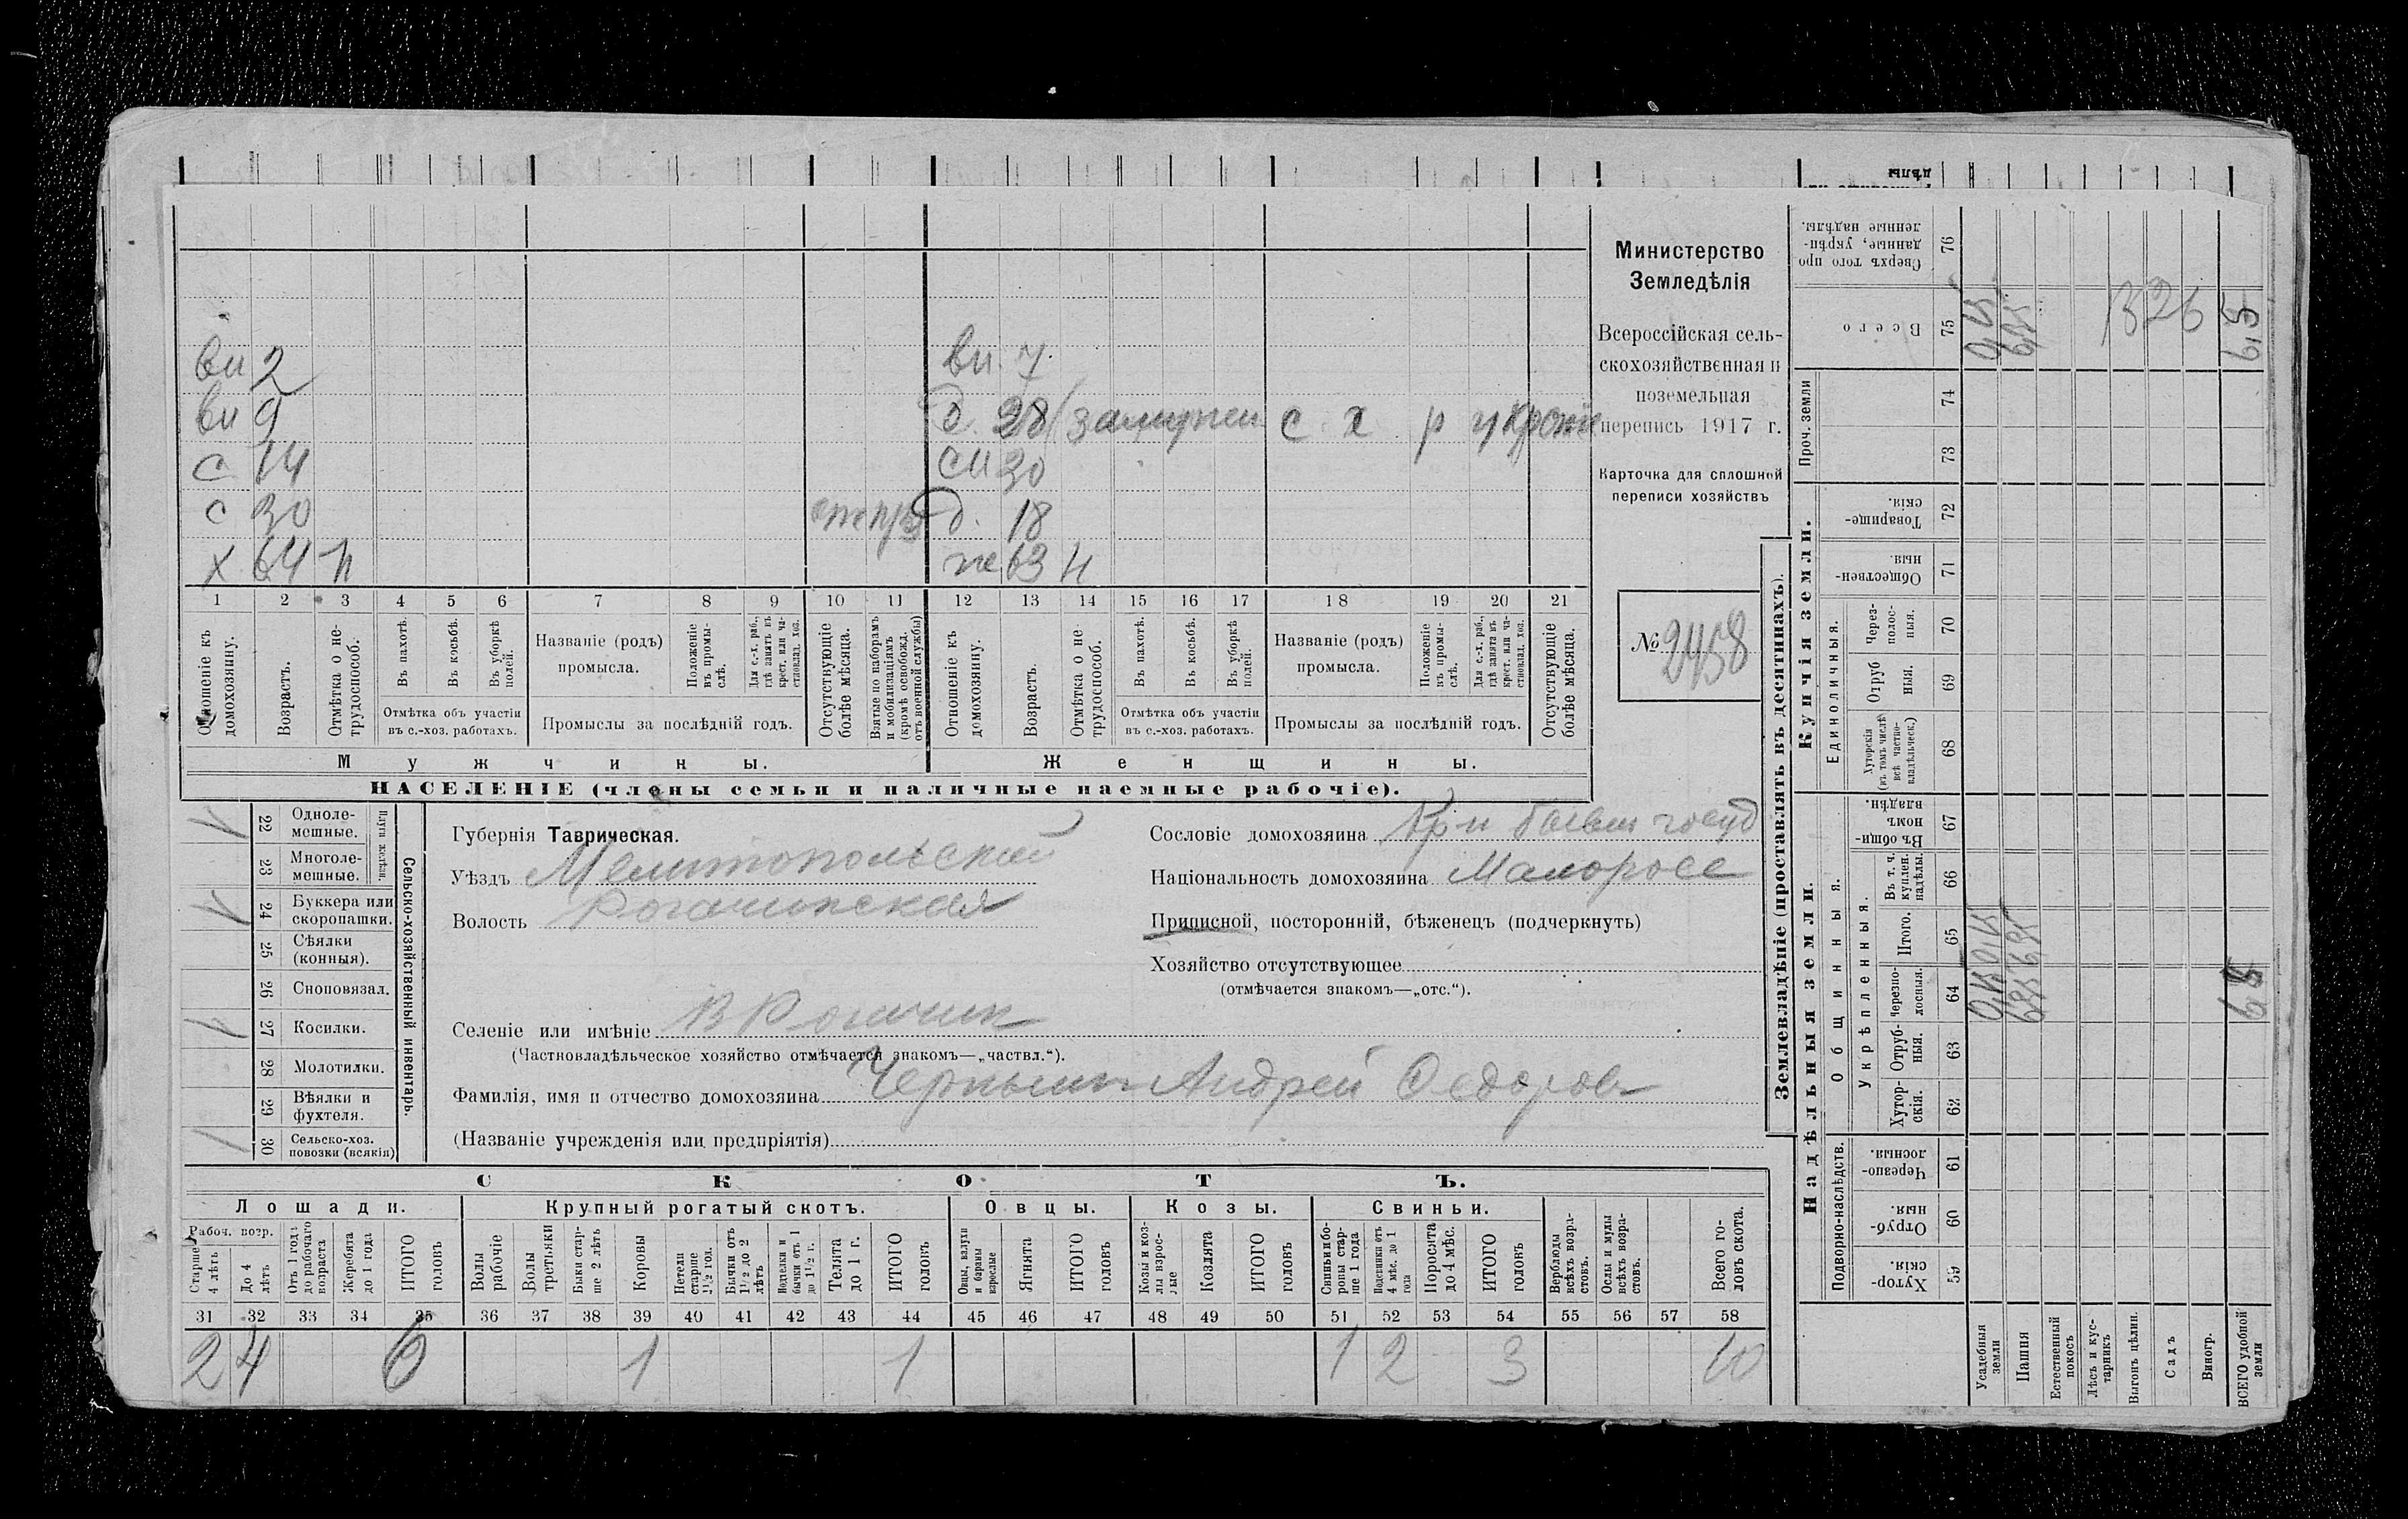 Министерство
Земледѣлія
Всероссійская сель-
скохозяйственная и
поземельная
перепись 1917 г.
Карточка для сплошной
переписи хозяйствъ
№ 2458
вн 2
вн 9
с 14
с 30
х 64 н
вн. 7
д. 28 (замужем с х р
сн 30
д. 18
же 63 н
1 2 3 4 5 6 7 8 9 10 11 12 13 14 15 16 17 18 19 20 21
Отношеніе къ домохозяину.
Возрастъ.
Отмѣтка о не-трудоспособ.
Въ пахотѣ.
Въ косьбѣ.
Въ уборкѣ полей.
Отмѣтка объ участіи
въ с.-хоз. работахъ.
Названіе (родъ)
промысла.
Положеніе въ промы-слѣ.
Для с.-х. раб., гдѣ занятъ въ крест. или ча-стновлад. хоз.
Промыслы за послѣдній годъ.
Отсутствующіе болѣе мѣсяца.
Взятые по наборамъ и мобилизаціямъ (кромѣ освобожд. отъ военной службы)
Отношеніе къ домохозяину.
Возрастъ.
Отмѣтка о не-трудоспособ.
Въ пахотѣ.
Въ косьбѣ.
Въ уборкѣ полей.
Отмѣтка объ участіи
въ с.-хоз. работахъ.
Названіе (родъ)
промысла.
Положеніе въ промы-слѣ.
Для с.-х. раб., гдѣ занята въ крест. или ча-стновлад. хоз.
Промыслы за послѣдній годъ.
Отсутствующіе болѣе мѣсяца.
Мужчины.
Женщины.
НАСЕЛЕНІЕ (члены семьи и наличные наемные рабочіе).
Сельско-хозяйственный инвентарь.
Плуги желѣзн.
22 Одноле-мешные.
23 Многоле-мешные.
24 Буккера или скоропашки.
25 Сѣялки (конныя).
26 Сноповязал.
27 Косилки.
28 Молотилки.
29 Вѣялки и фухтеля.
30 Сельско-хоз. повозки (всякія)
Губернія Таврическая.
Уѣздъ Мелитопольский
Волость Рогачинская
Селеніе или имѣніе В Рогачик
(Частновладѣльческое хозяйство отмѣчается знакомъ—„частвл.“).
Фамилія, имя и отчество домохозяина Черныш Андрей Федоров
(Названіе учрежденія или предпріятія)
Сословіе домохозяина Кр-н бывш госуд
Національность домохозяина Малоросс
Приписной, посторонній, бѣженецъ (подчеркнуть)
Хозяйство отсутствующее
(отмѣчается знакомъ—„отс.“).
СКОТЪ.
Лошади.
Рабоч. возр.
Старше 4 лѣтъ
До 4 лѣтъ
Отъ 1 года до рабочаго возраста
Жеребята до 1 года
ИТОГО головъ
Крупный рогатый скотъ.
Волы рабочіе
Волы третьяки
Быки стар-ше 2 лѣтъ
Коровы
Нетели старше 1½ год.
Бычки отъ 1½ до 2 лѣтъ
Подтелки и бычки отъ 1 до 1½ г.
Телята до 1 г.
ИТОГО головъ
Овцы.
Овцы, валухи и бараны взрослые
Ягнята
ИТОГО головъ
Козы.
Козы и коз-лы взрос-лые
Козлята
ИТОГО головъ
Свиньи.
Свиньи и бо-ровы стар-ше 1 года
Подсвинки отъ 4 мѣс. до 1 года
Поросята до 4 мѣс.
ИТОГО головъ
Верблюды всѣхъ возра-стовъ.
Ослы и мулы всѣхъ возра-стовъ.
Всего го-ловъ скота.
31 32 33 34 35 36 37 38 39 40 41 42 43 44 45 46 47 48 49 50 51 52 53 54 55 56 57 58
2 4 6 1 1 1 2 3 10
Землевладѣніе (проставлять въ десятинахъ).
Надѣльныя земли.
Купчія земли.
Проч. земли
Подворно-наслѣдств.
Общинныя.
Укрѣпленныя.
Единоличныя.
59 Хутор-скія.
60 Отруб-ныя.
61 Черезпо-лосныя.
62 Хутор-скія.
63 Отруб-ныя.
64 Черезпо-лосныя.
65 Итого.
66 Въ т. ч. куплен. надѣлы.
67 Въ общин-номъ владѣн.
68 Хуторскія (въ томъ числѣ всѣ частно-владѣльческ.)
69 Отруб ныя.
70 Через-полос-ныя.
71 Обществен-ныя.
72 Товарище-скія.
73
74
75 Всего
76 Сверхъ того про данные, укрѣп-ленные надѣлы.
Усадебныя земли
Пашня
Естественный покосъ
Лѣсъ и кус-тарникъ
Выгонъ цѣлин.
Садъ
Виногр.
ВСЕГО удобной земли
1326